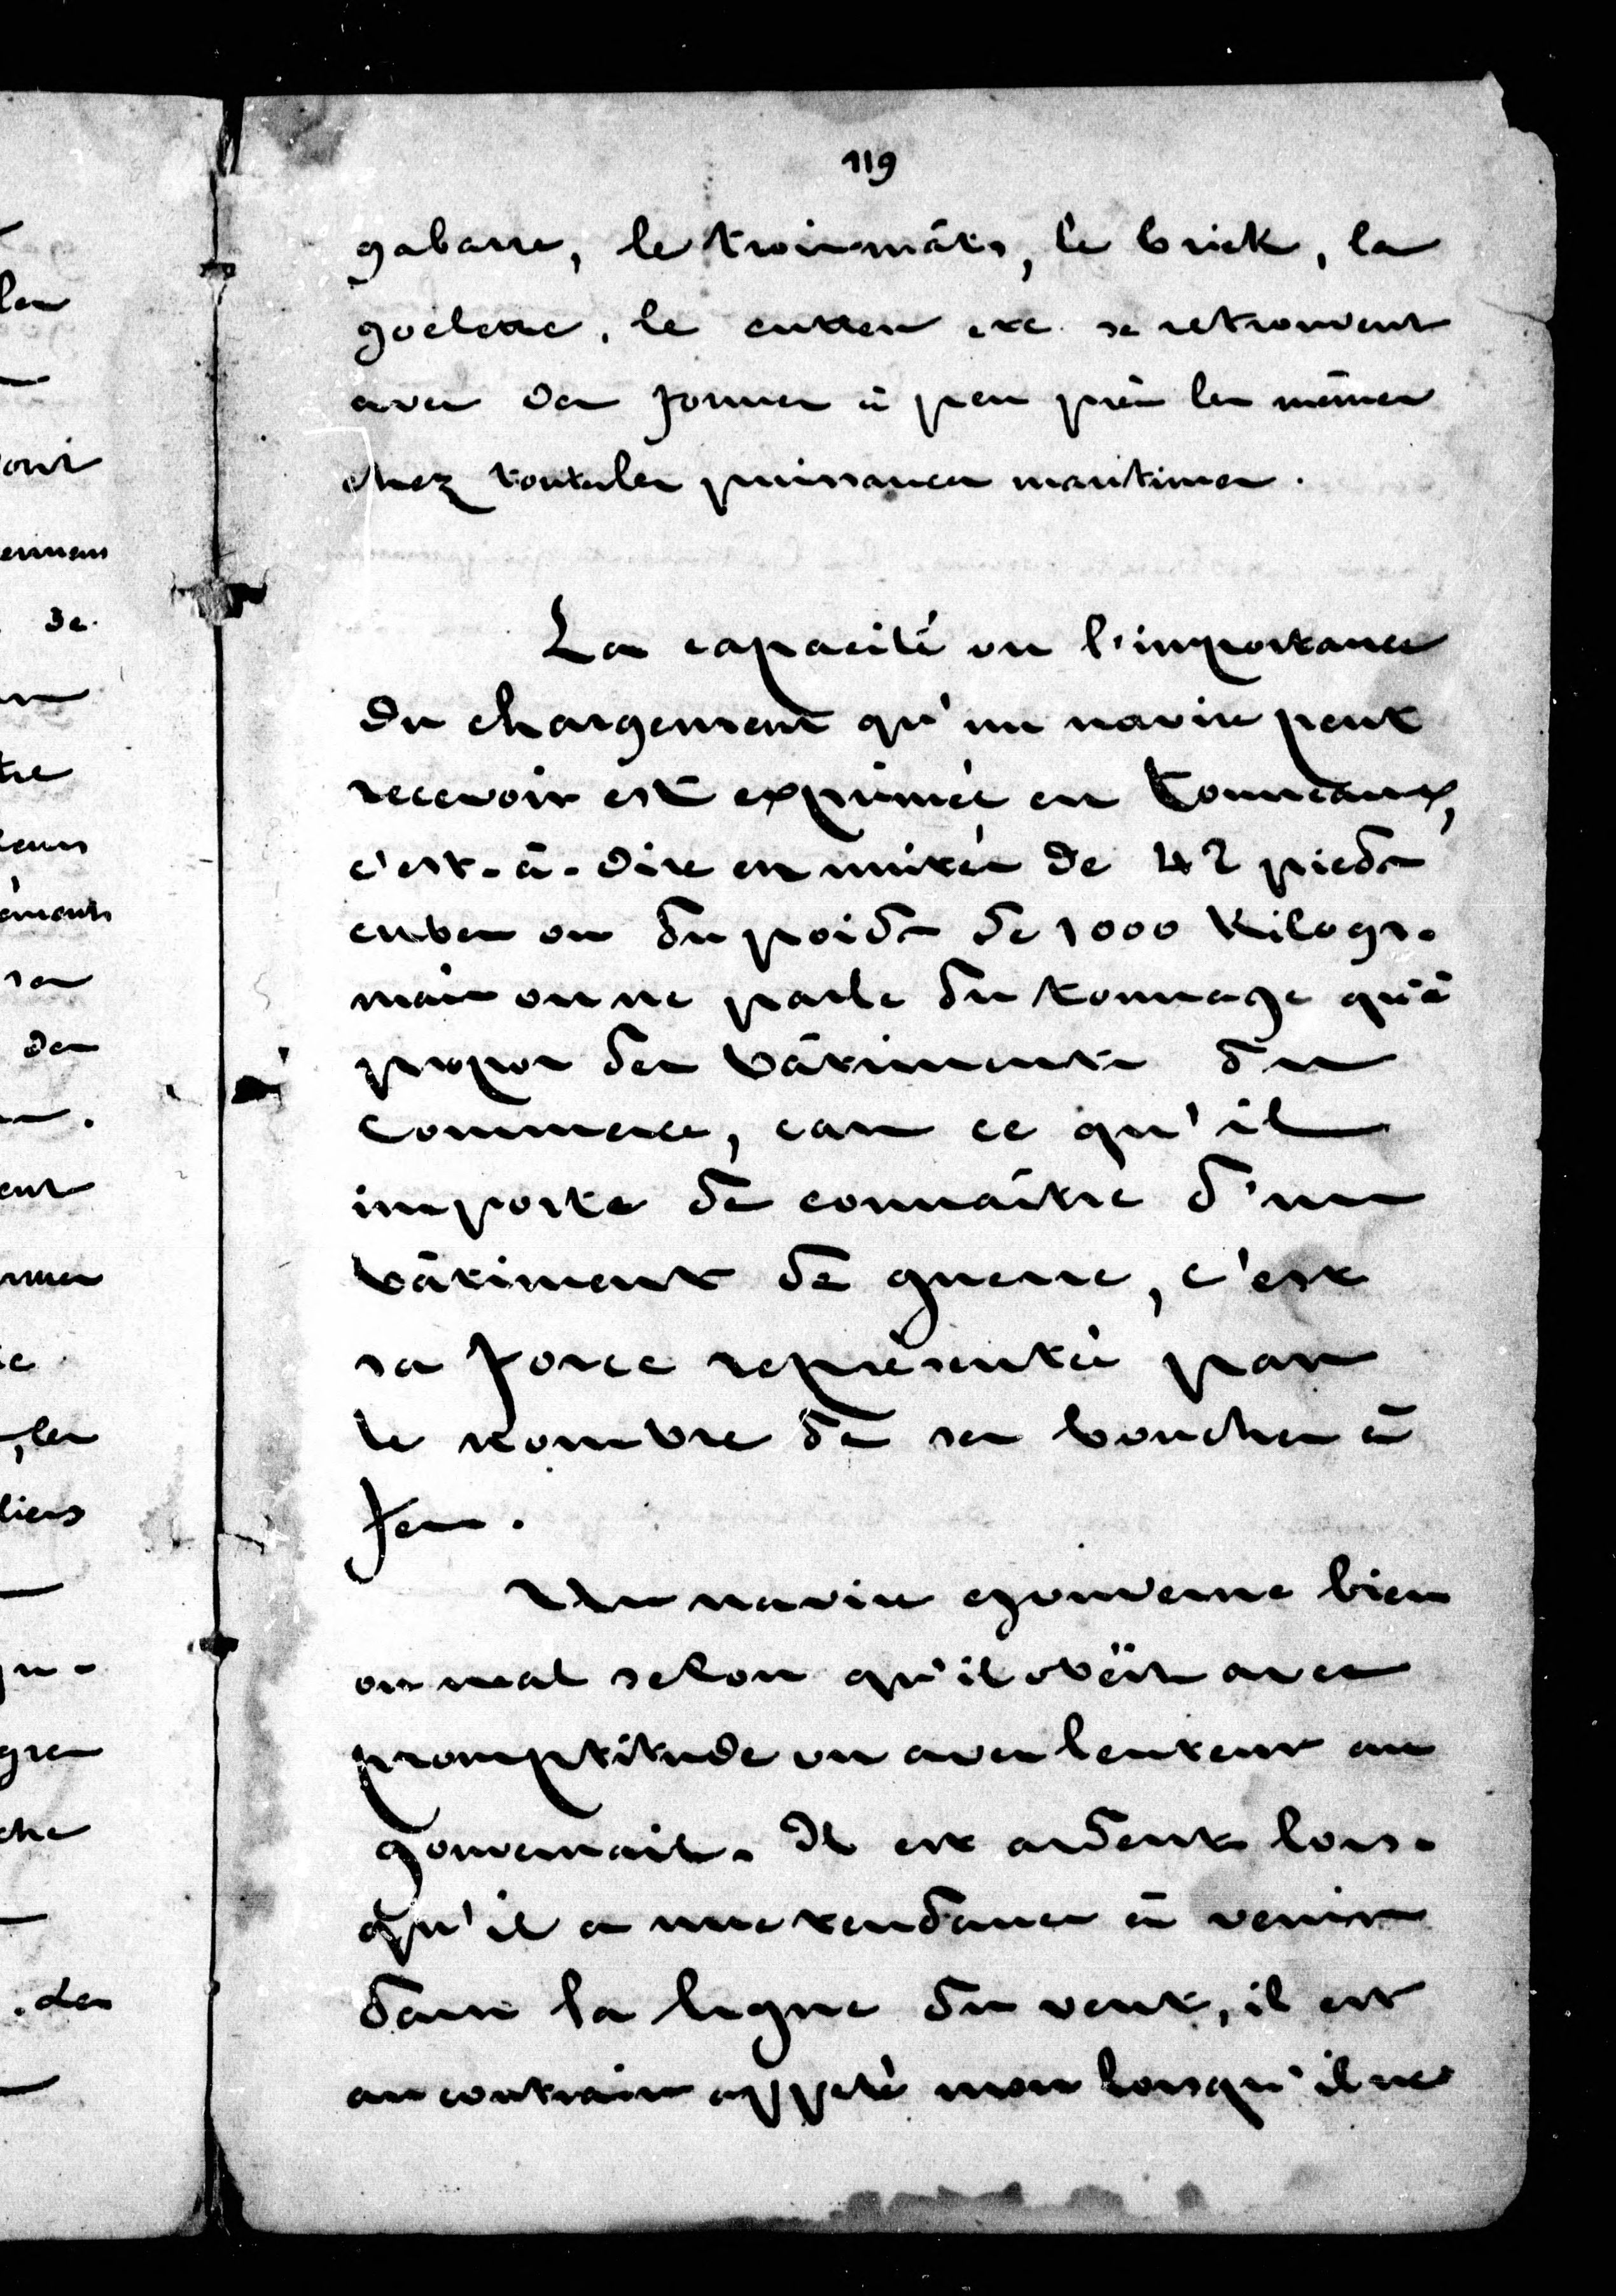 119
gabarre, le trois-mâts, le brick, la
goëlette, le cutter etc. se retrouvent
avec des formes à peu près les mêmes
chez toutes les puissances maritimes.
La capacité ou l'importance
du chargement qu'un navire peut
recevoir est exprimée en tonneaux,
c'est-à-dire en unités de 42 pieds
cubes ou du poids de 1000 Kilogr.
mais on ne parle du tonnage qu'à
propos des bâtiments du
commerce, car ce qu'il
importe de connaître d'un
bâtiment de guerre, c'est
sa force représentée par
le nombre de ses bouches à
feu.
Un navire gouverne bien
ou mal selon qu'il obéit avec
promptitude ou avec lenteur au
gouvernail. Il est ardent lors-
qu'il a une tendance à venir
dans la ligne du vent, il est
au contraire appelé mou lorsqu'il ne